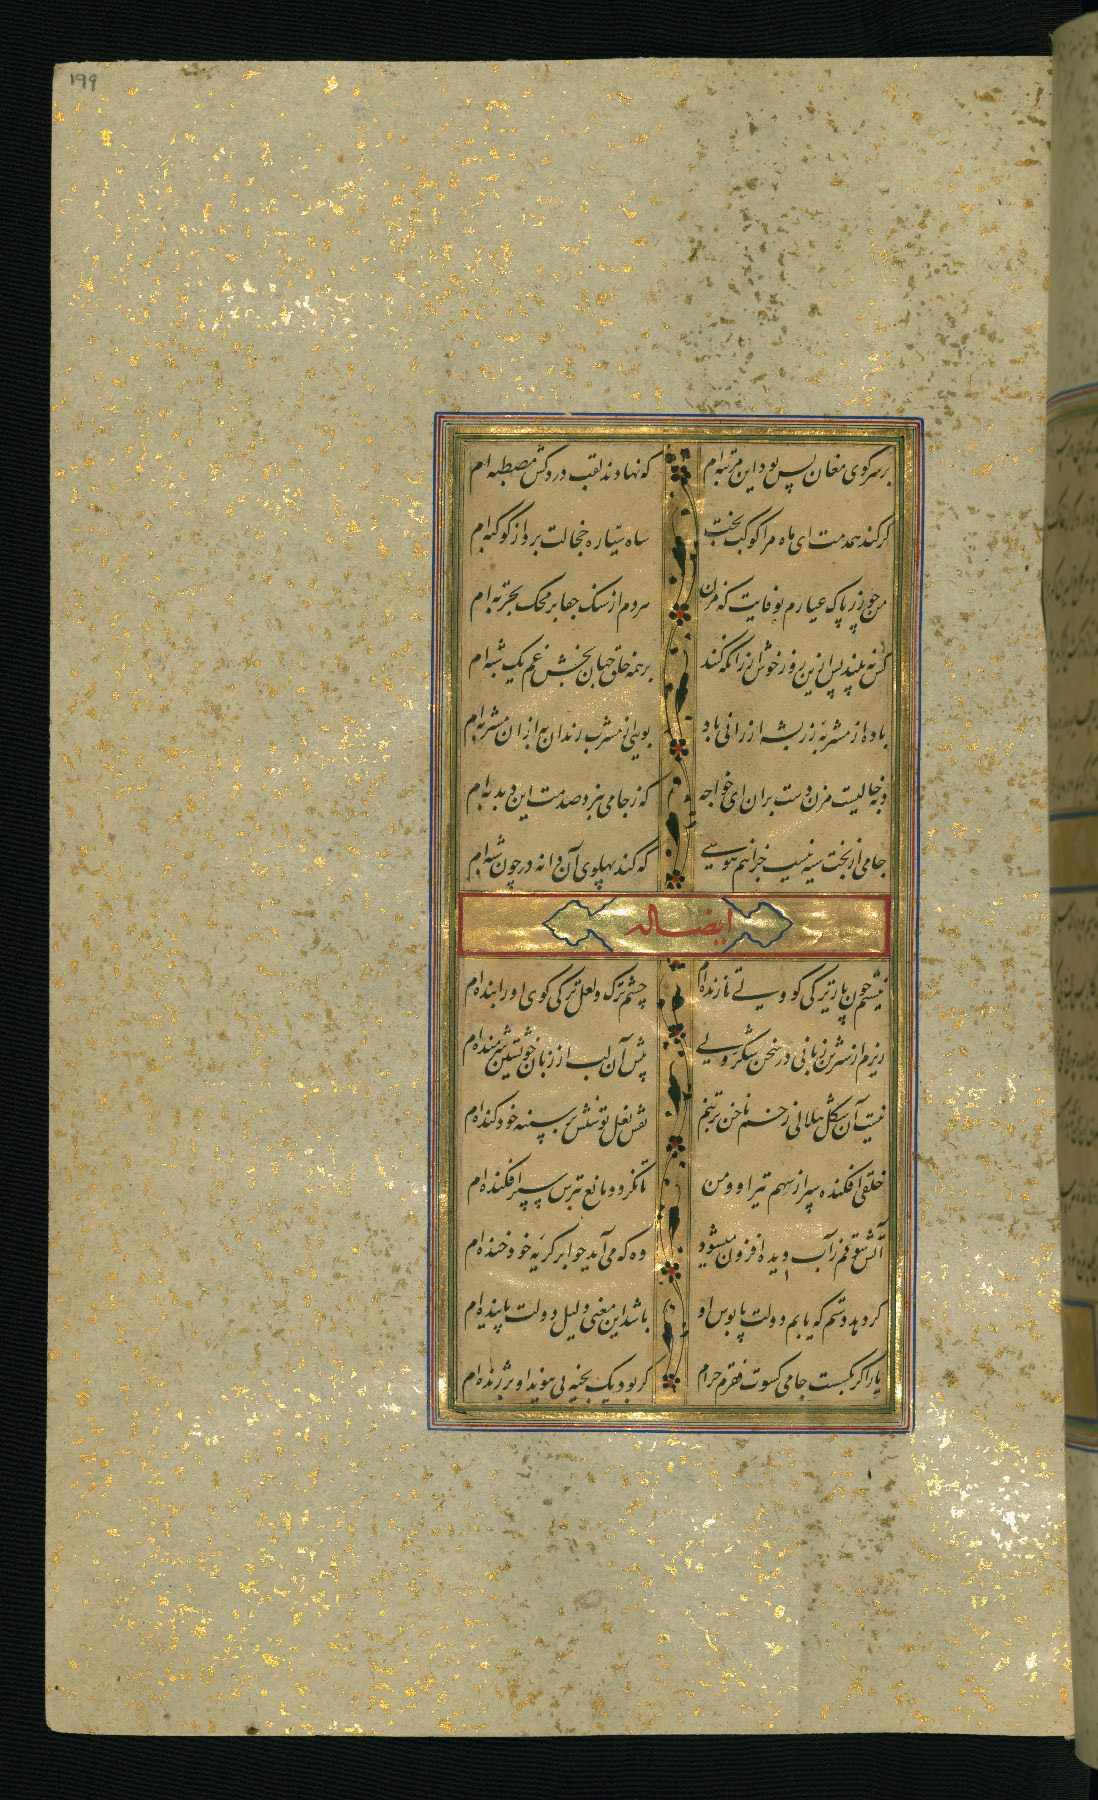 ۱۹۹
بر سر کوی مغان بس بود این مرتبه‌ام که نهادند لقب دردکش مصطبه‌ام
گر کند همدمت ای ماه مرا کوکب بخت شاه سیاره خجالت برد از کوکبه‌ام
من چو زر پاک عیارم بوفایت که مزن هردم از سنک جفا بر محک تجربه‌ام
کس نه بیند پس ازین روز خوش ار زانکه کنند بر همه خلق جهان بخش غم یک شبه‌ام
باده از مشربه زر بشه ارزانی باد بویی از مشرب رندان به از آن مشربه‌ام
دبه خالیست مزن دست بران ای خواجه که ز جامی هنر و صدمت این دبدبه‌ام
جامی از بخت سیه نیست جز اینم هوسی که کند پهلوی آن دانه در چون شبه‌ام
ایضاله
نیستم چون یار ترکی کو ولی تا زنده‌ام چشم ترک و لعل ترکی کوی او را بنده‌ام
ریزم از شیرین زبانی در سخن شکر ولی پیش آن لب از زبان خویشتن شرمنده‌ام
نیست آن شکل هلالی زخم ناخن بر تنم نقش نعل توسنش بر سینه خود کنده‌ام
خلقی افکنده سپر از سهم تیر او و من تا نکردد مانع تیرش سپر افکنده‌ام
آتش شوقم ز آب دیده افزون میشود وه که می آید چو ابر کریه خود خنده‌ام
کر دهد دستم که یابم دولت پابوس او باشد این معنی دلیل دولت پاینده‌ام
یار اکر بگسست جامی کسوت فقرم حرام کر بود یک بخیه بی پیوند او بر ژنده‌ام